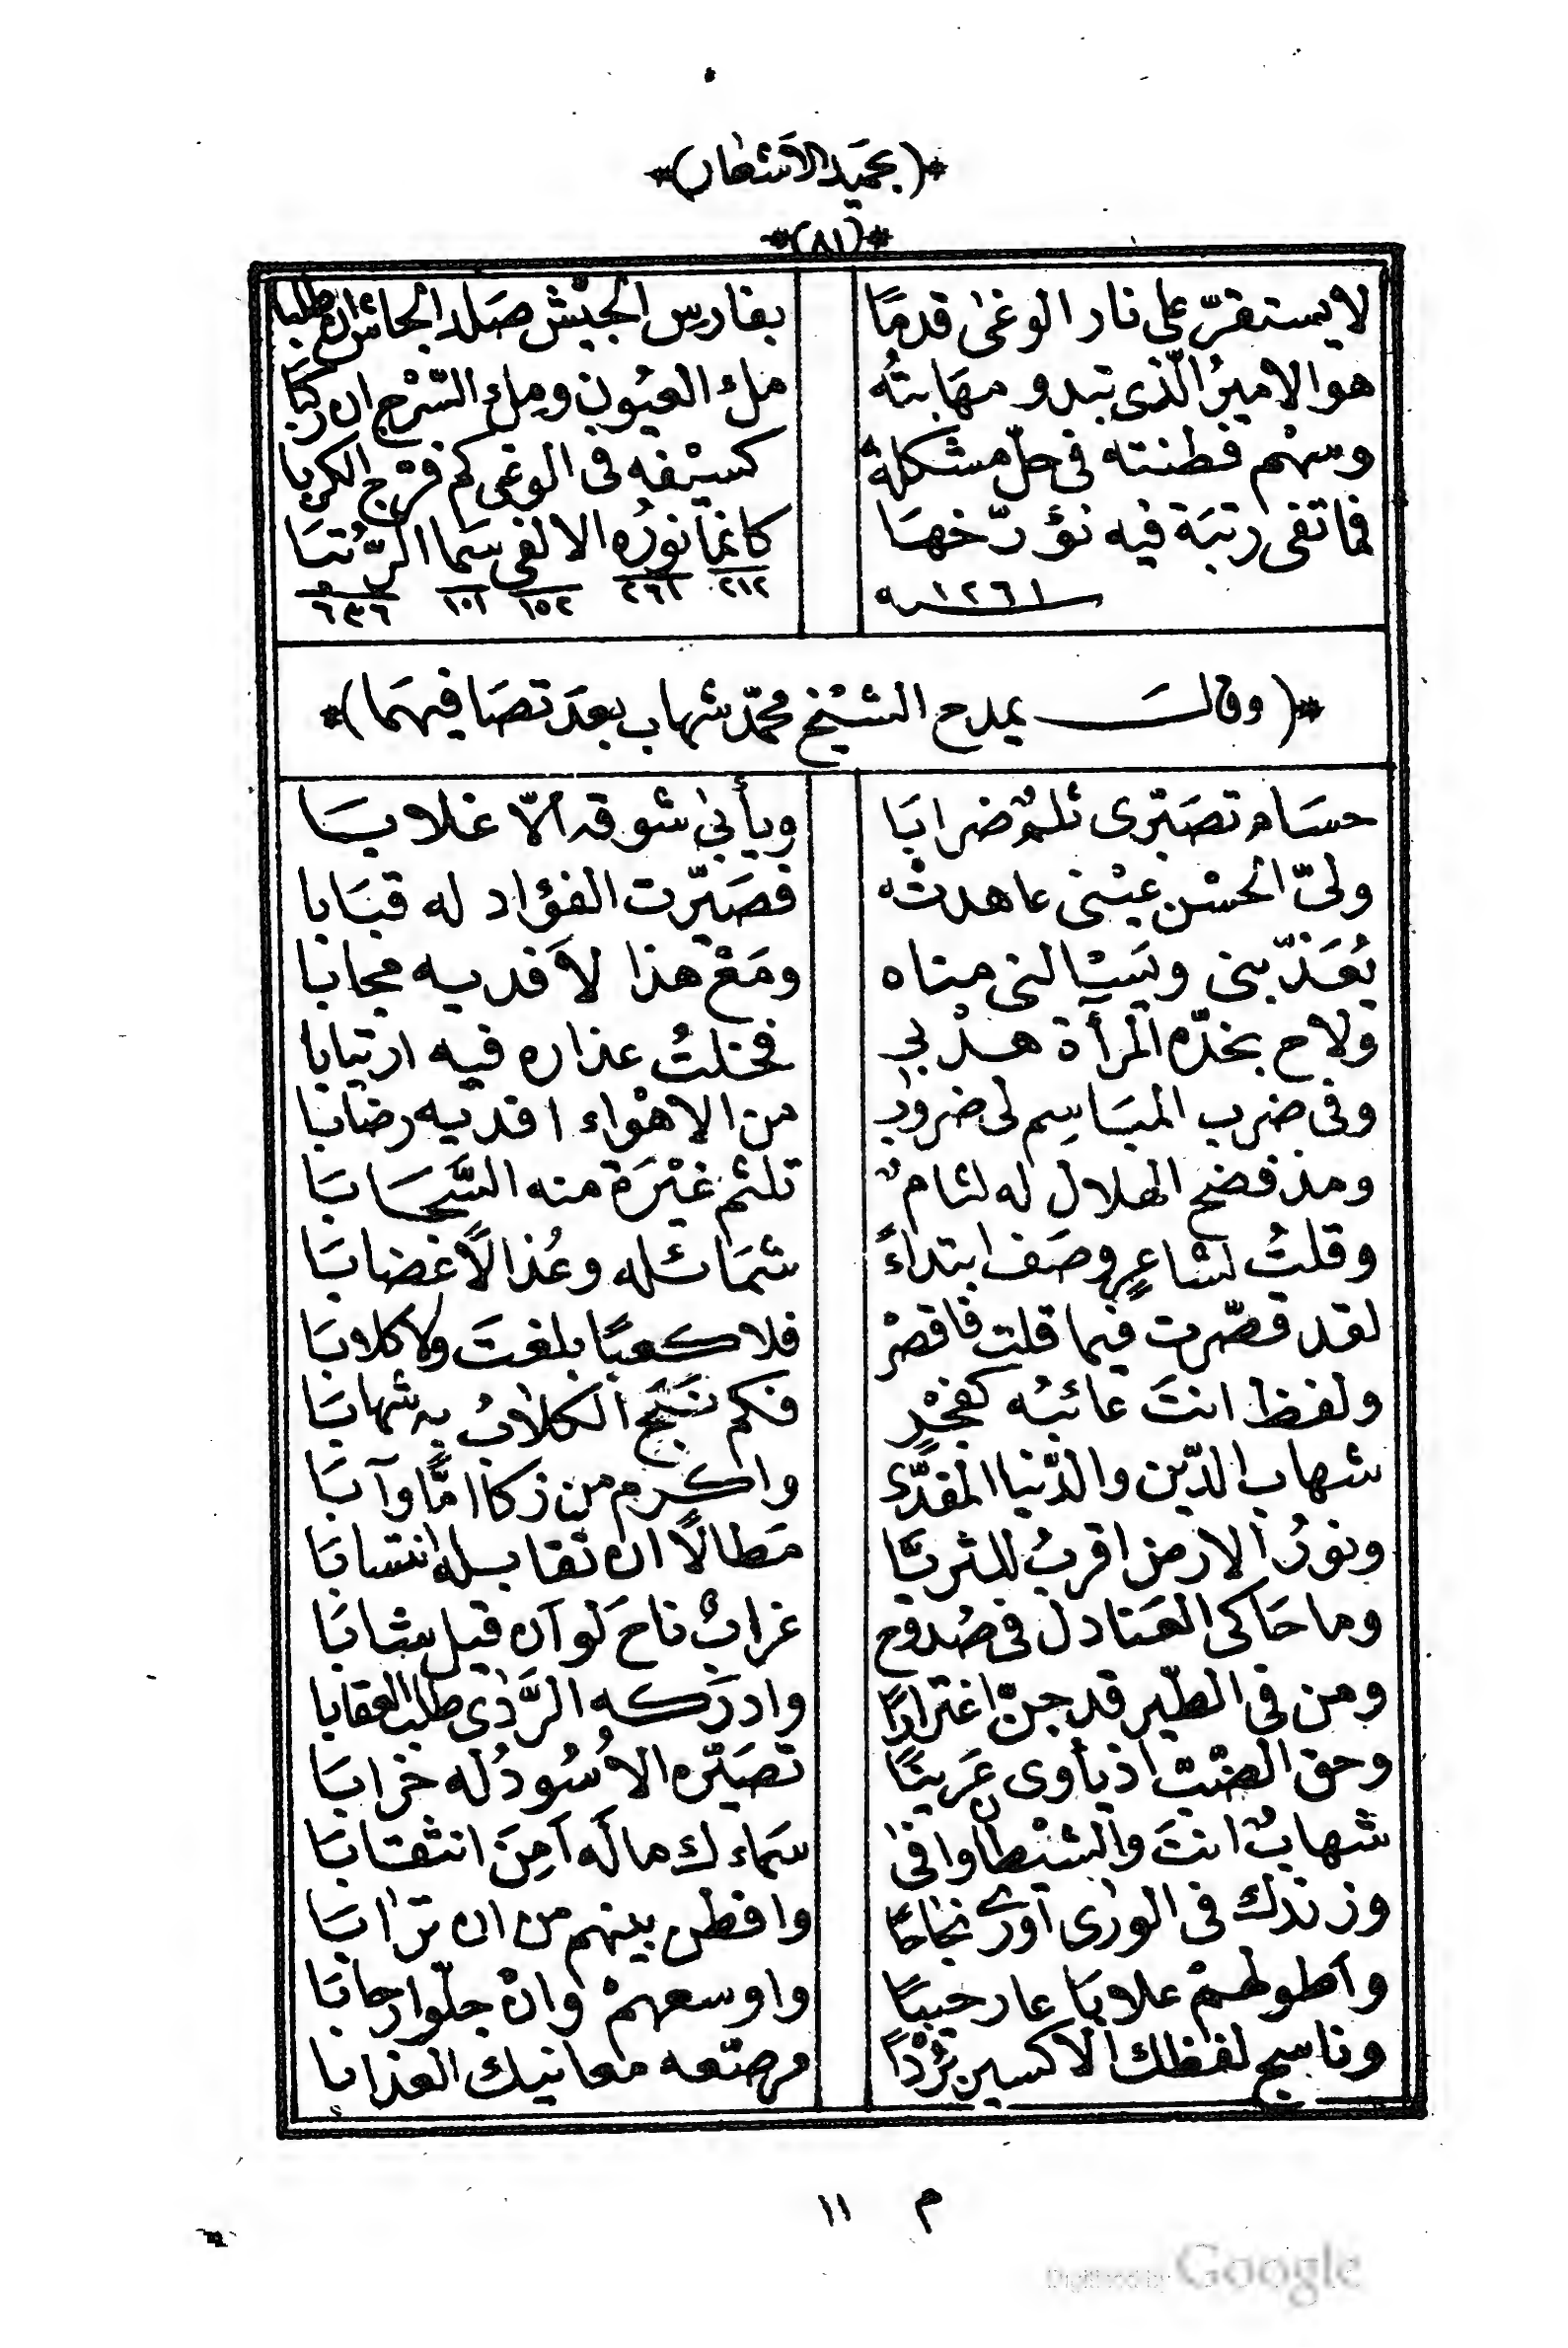 *(بحميد الاشعار)*
*(٨١)*
لا يستقرّ على نار الوغى قدمًا بفارس الجيش صَلد الجاش ان طلبا
هو الامير الّذى تبدو مهَابتُه ملء العيُون وملء السّرْج ان ركبَا
وسهْم فطنته فى حلّ مشكلة كسيْفه فى الوغى كم فرّج الكربا
فما تفى رتبَة فيه نؤرّخهَا كانمَا نورُه الالفى سَما الرُّتبَا
١٢٦١ سنه ٢١٢ ٢٦١ ١٥٢ ١٠١ ٦٣٦
*(وقالـــ يمدح الشيْخ محمّد شهاب بعدَ تصَافيهمَا)*
حسَام تصَبّرى ثلم ضرابَا ويأبىٰ شوقه الّا غلابَا
ولىّ الحسْن عيْنى عاهدتْه فصَيّرت الفؤاد له قبَابا
يُعَذّبنى ويَسْالنى متاه ومَعْ هذا لأفديه مجابا
ولاح بخدّه المرأة هدْبى فخلتُ عذاره فيه ارتيابا
وفى ضرب المبَاسِم لى ضروب من الاهْواء افديه رضابا
ومذ فضح الهلال له لثام تلثم غيْرَة منه السَّحَابَا
وقلتُ لشاعرٍ وصَف ابتداءً شمَائله وعُذالًا غضابَا
لقد قصّرت فيما قلت فاقصرْ فلا كعبًا بلغتَ ولا كلابَا
ولفظ انتَ عائبُه كفجْرٍ فكم نبَحَ الكلابُ به شهابَا
شهاب الدّين والدّنيا المفدّى واكرم من زكا امًّا وآبَا
ونورُ الارض اقربُ للثريّا مَطالًا ان تقابله انتسابَا
وما حَاكى العَنادل فى صُدوح غرابٌ ناحَ لو آن قيل شابَا
ومن فى الطّير قد جنّ اغترارًا وادرَكه الرَّدٰى طلب العقابا
وحق الضّبّ اذ يأوى عَرينًا تصَيّره الاسُودُ له خرابَا
شهابٌ انتَ والشيْطان وافى سَماءك ماله آمِنَ انثقابَا
وزندك فى الورٰى آورى نجَاحًا وافطن بينهم من ان ترابَا
وآطولهمْ علابَا عارحيبًا واوسعهمْ وانْ جلّوا رحابَا
وناسج لفظك الاكسير بُرْدًا مرصّعه معانيك العذابا
م ١١
Digitized by Google